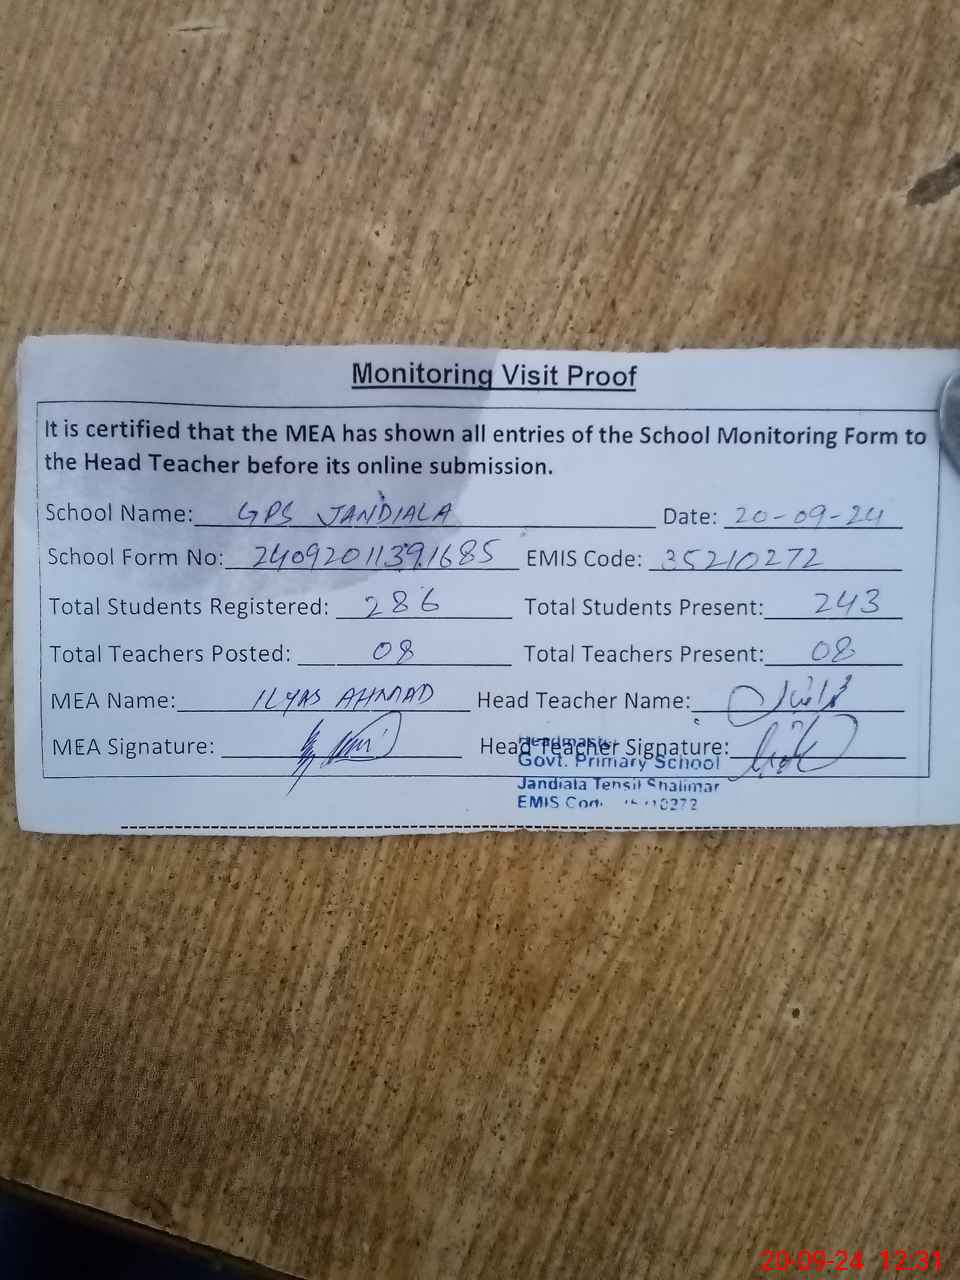 Monitoring Visit Proof
It is certified that the MEA has shown all entries of the School Monitoring Form to
the Head Teacher before its online submission.
School Name: GPS JANDIALA Date: 20-09-24
School Form No: 24092011391685 EMIS Code: 35210272
Total Students Registered: 286 Total Students Present: 243
Total Teachers Posted: 08 Total Teachers Present: 08
MEA Name: ILYAS AHMAD Head Teacher Name:
MEA Signature: Head Teacher Signature:
Headmaster
Govt. Primary School
Jandiala Tensil Shalimar
EMIS 10272
20-09-24 12:31